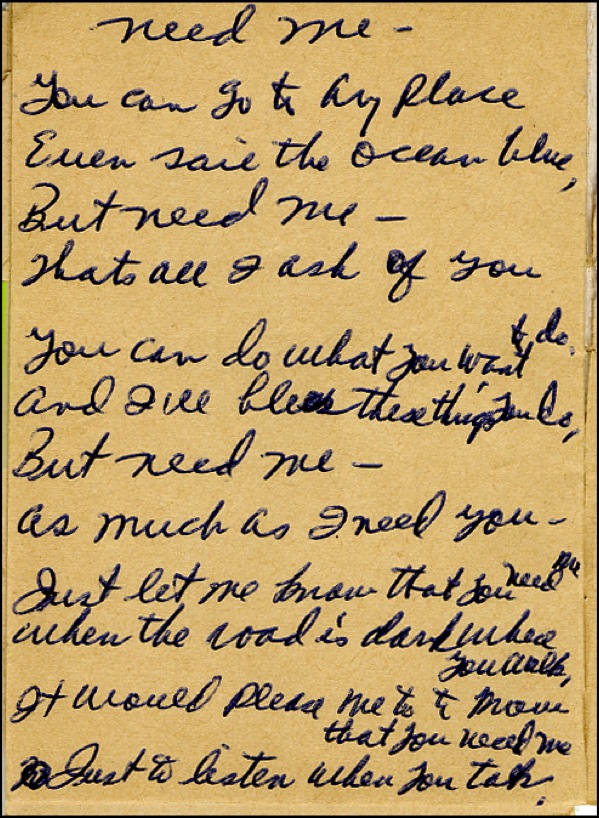 need me -
You can go to any place
Even saie the ocean blue,
But need me -
Thats all I ask of you
You can do what you want to do.
and I'll bless these things you do,
But need me -
as much as I need you -
Just let me know that you need me
when the road is dark where
you walk,
It would please me to to know
that you need me
Just to listen when you talk.